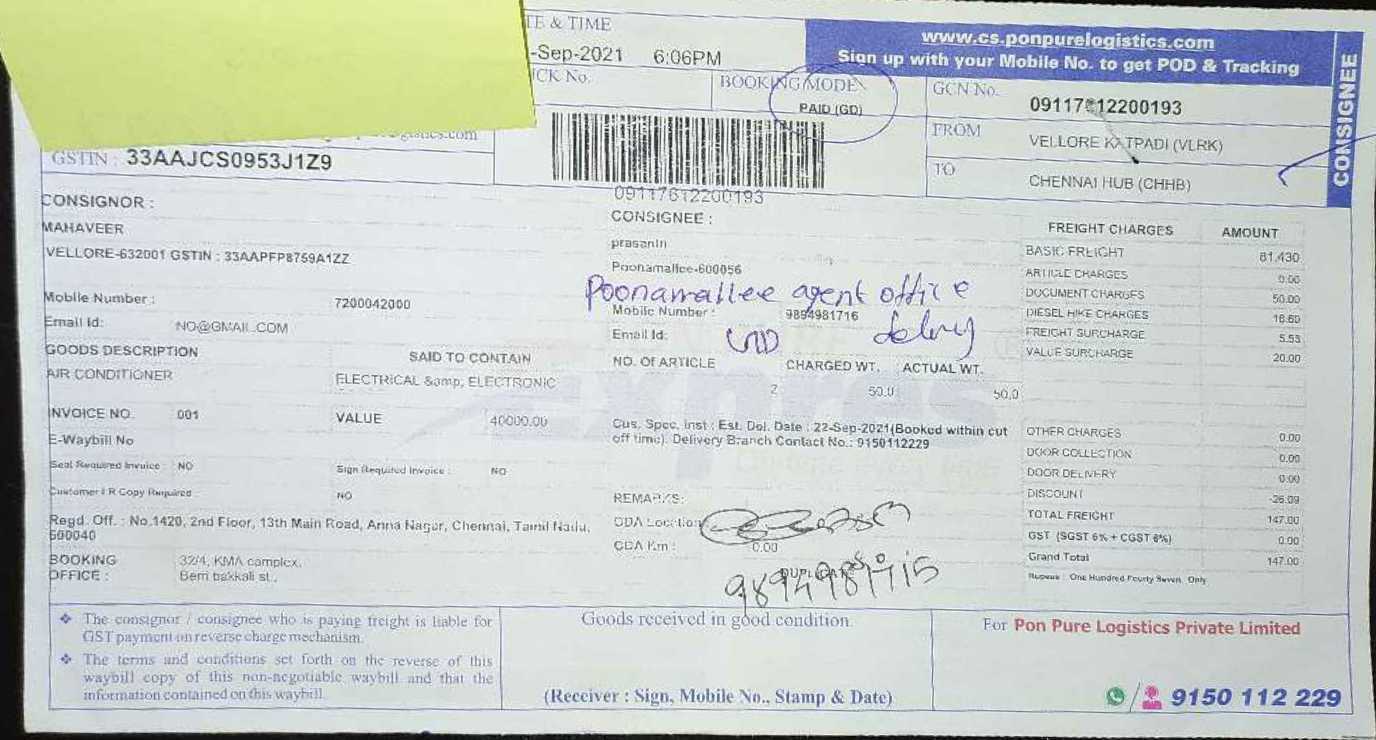 TE & TIME
-Sep-2021 6:06PM
www.cs.ponpurelogistics.com
Sign up with your Mobile No. to get POD & Tracking
CONSIGNEE
CK No.
BOOKING MODE
PAID (GD)
GCN No.
09117612200193
FROM
VELLORE KATPADI (VLRK)
TO
CHENNAI HUB (CHHB)
gistics.com
GSTIN : 33AAJCS0953J1Z9
09117612200193
CONSIGNOR :
MAHAVEER
VELLORE-632001 GSTIN : 33AAPFP8759A1ZZ
Mobile Number : 7200042000
Email Id: NO@GMAIL.COM
GOODS DESCRIPTION SAID TO CONTAIN
AIR CONDITIONER ELECTRICAL &amp; ELECTRONIC
INVOICE NO. 001 VALUE 40000.00
E-Waybill No
Seal Required Invoice : NO Sign Required Invoice : NO
Customer I R Copy Required : NO
Regd. Off. : No.1420, 2nd Floor, 13th Main Road, Anna Nagar, Chennai, Tamil Nadu,
600040
BOOKING OFFICE : 32/4, KMA complex,
Berri bakkali st.,
CONSIGNEE :
Poonamallee-600056
Poonamallee agent office
Mobile Number : 9894981716
Email Id:
NO. Of ARTICLE CHARGED WT. ACTUAL WT.
2 50.0 50.0
Cus. Spec. Inst : Est. Del. Date : 22-Sep-2021(Booked within cut
off time). Delivery Branch Contact No.: 9150112229
REMARKS:
ODA Location
ODA Km : 0.00
FREIGHT CHARGES AMOUNT
BASIC FREIGHT 81.430
ARTICLE CHARGES 0.00
DOCUMENT CHARGES 50.00
DIESEL HIKE CHARGES 16.60
FREIGHT SURCHARGE 5.53
VALUE SURCHARGE 20.00
OTHER CHARGES 0.00
DOOR COLLECTION 0.00
DOOR DELIVERY 0.00
DISCOUNT -26.09
TOTAL FREIGHT 147.00
GST (SGST 6% + CGST 6%) 0.00
Grand Total 147.00
Rupees : One Hundred Fourty Seven Only
❖ The consignor / consignee who is paying freight is liable for
GST payment on reverse charge mechanism.
❖ The terms and conditions set forth on the reverse of this
waybill copy of this non-negotiable waybill and that the
information contained on this waybill.
Goods received in good condition.
(Receiver : Sign, Mobile No., Stamp & Date)
For Pon Pure Logistics Private Limited
9150 112 229